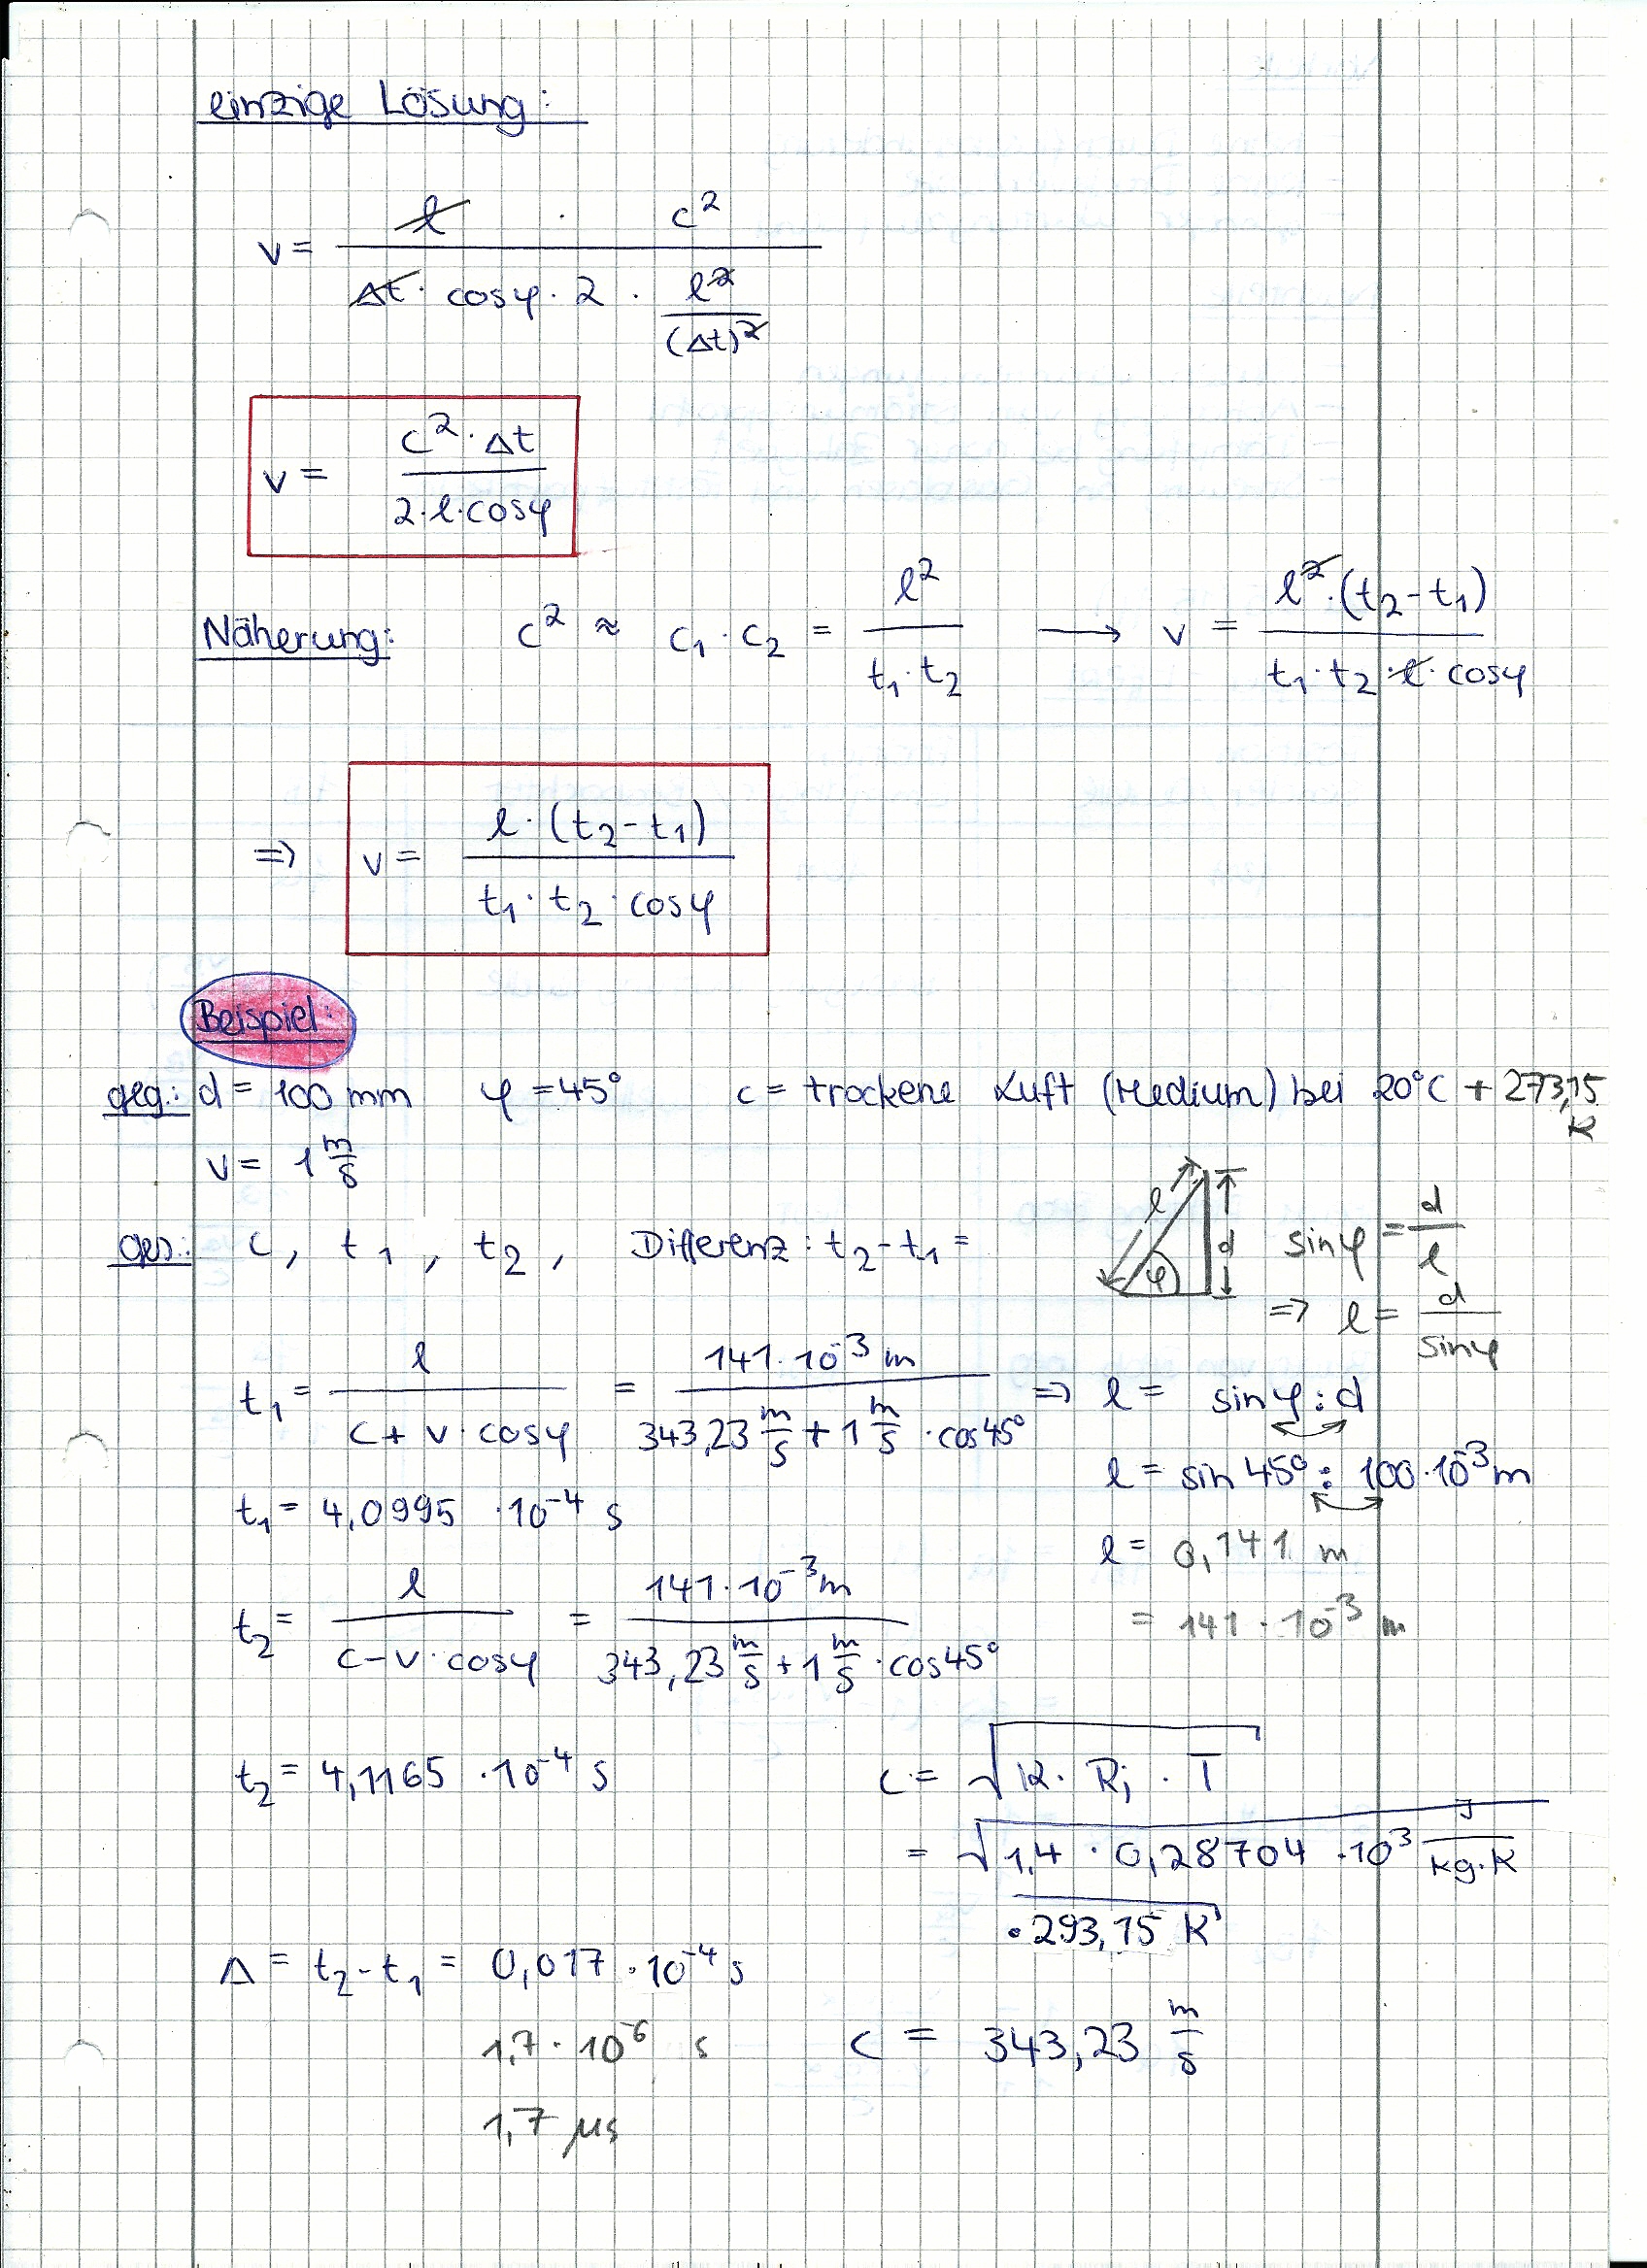 einzige Lösung:
v = l · c² / (Δt · cosφ · 2 · l²/(Δt)²)
v = c² · Δt / (2 · l · cosφ)
Näherung: c² ≈ c₁ · c₂ = l² / (t₁ · t₂) ⟶ v = l² · (t₂ - t₁) / (t₁ · t₂ · l · cosφ)
⇒ v = l · (t₂ - t₁) / (t₁ · t₂ · cosφ)
Beispiel:
geg.: d = 100 mm φ = 45° c = trockene Luft (Medium) bei 20°C + 273,15 K
v = 1 m/s
ges.: c, t₁, t₂, Differenz: t₂ - t₁ =
l d φ
sinφ = d/l
⇒ l = d/sinφ
t₁ = l / (c + v · cosφ) = 141 · 10⁻³ m / (343,23 m/s + 1 m/s · cos 45°)
⇒ l = sinφ : d
l = sin 45° : 100 · 10⁻³ m
t₁ = 4,0995 · 10⁻⁴ s
l = 0,141 m
= 141 · 10⁻³ m
t₂ = l / (c - v · cosφ) = 141 · 10⁻³ m / (343,23 m/s + 1 m/s · cos 45°)
t₂ = 4,1165 · 10⁻⁴ s
c = √(κ · Ri · T)
= √(1,4 · 0,28704 · 10³ J/(kg·K)
· 293,15 K)
Δ = t₂ - t₁ = 0,017 · 10⁻⁴ s
1,7 · 10⁻⁶ s
c = 343,23 m/s
1,7 µs